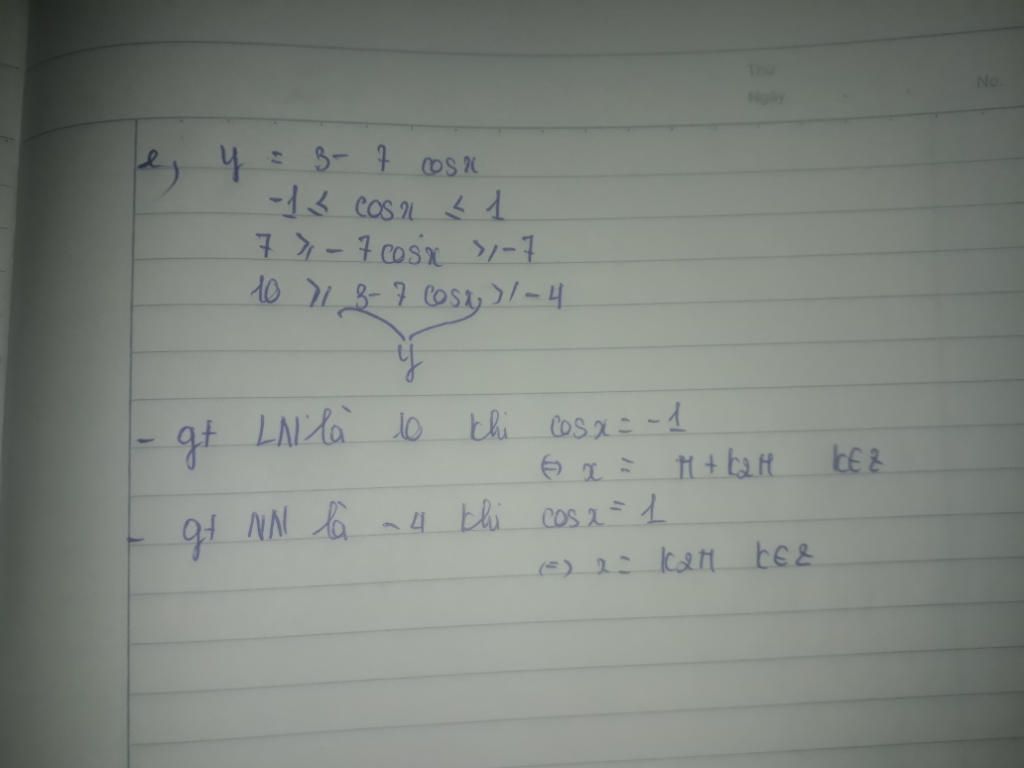 Thứ
Ngày
No.
e, y = 3 - 7 cosx
-1 ≤ cosx ≤ 1
7 ⩾ - 7 cosx ⩾ -7
10 ⩾ 3 - 7 cosx ⩾ -4
y
- gt LN là 10 khi cosx = -1
⇔ x = π + k2π k∈Z
- gt NN là -4 khi cosx = 1
⇔ x = k2π k∈Z